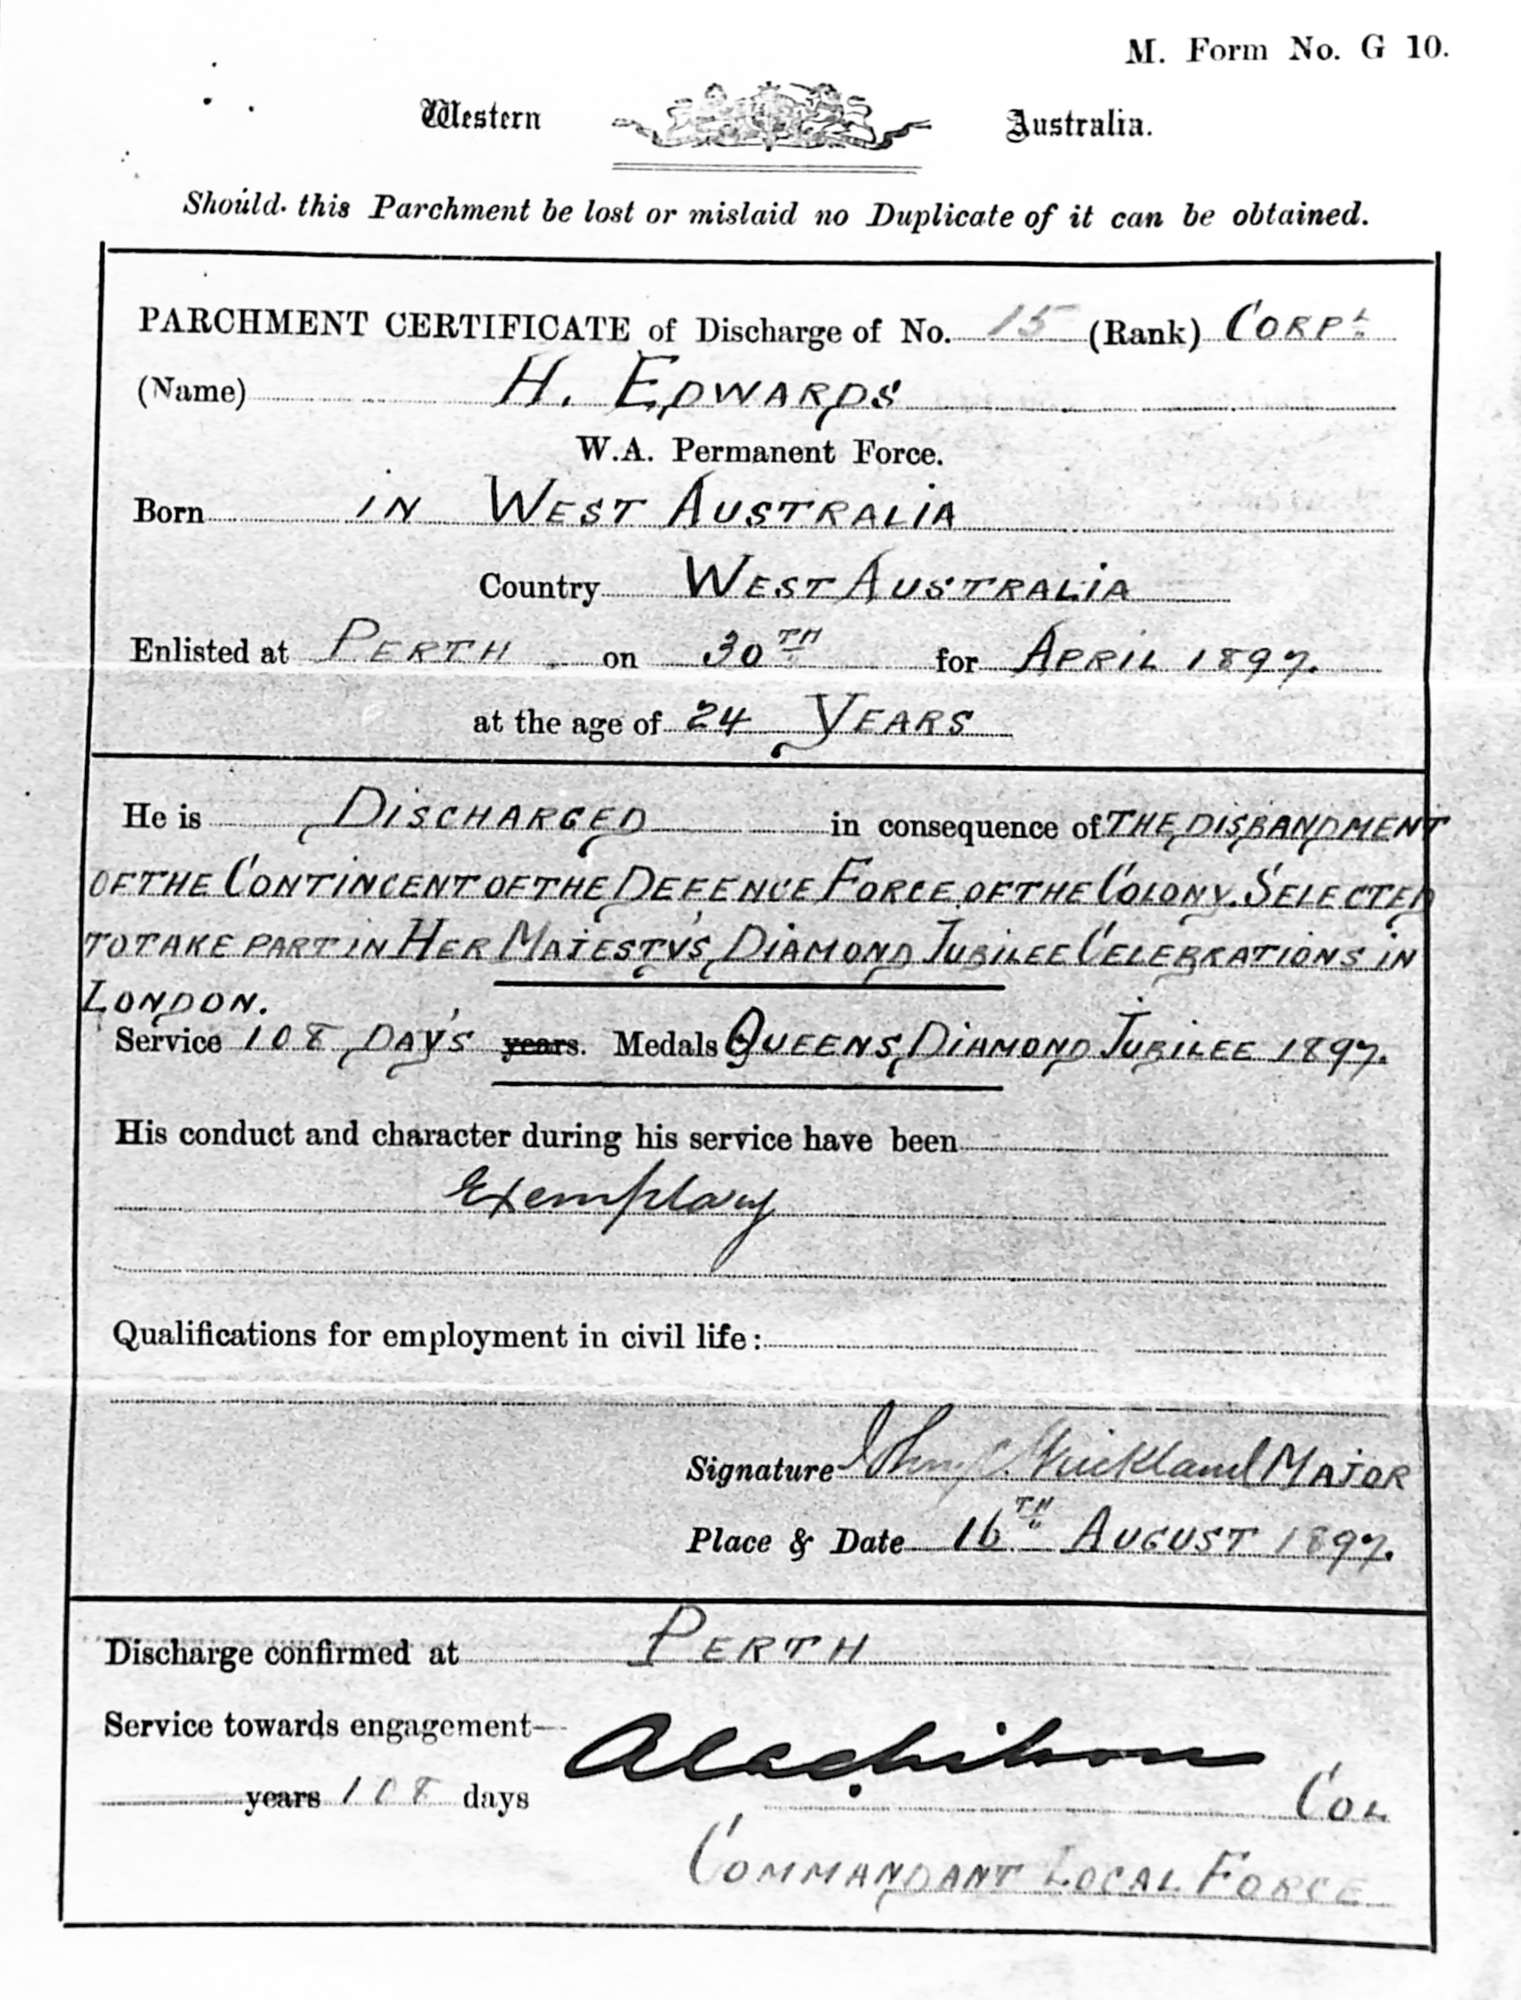 M. Form No. G 10.
Western Australia.
Should this Parchment be lost or mislaid no Duplicate of it can be obtained.
PARCHMENT CERTIFICATE of Discharge of No. 15 (Rank) CORPL.
(Name) H. EDWARDS
W.A. Permanent Force.
Born IN WEST AUSTRALIA
Country WEST AUSTRALIA
Enlisted at PERTH on 30TH for APRIL 1897.
at the age of 24 YEARS
He is DISCHARGED in consequence of THE DISBANDMENT
OF THE CONTINGENT OF THE DEFENCE FORCE OF THE COLONY. SELECTED
TO TAKE PART IN HER MAJESTY'S DIAMOND JUBILEE CELEBRATIONS IN
LONDON.
Service 108 DAY'S years. Medals QUEENS DIAMOND JUBILEE 1897.
His conduct and character during his service have been
Exemplary
Qualifications for employment in civil life:
Signature Strickland MAJOR
Place & Date 16TH AUGUST 1897.
Discharge confirmed at PERTH
Service towards engagement—
years 108 days
COL
COMMANDANT LOCAL FORCE